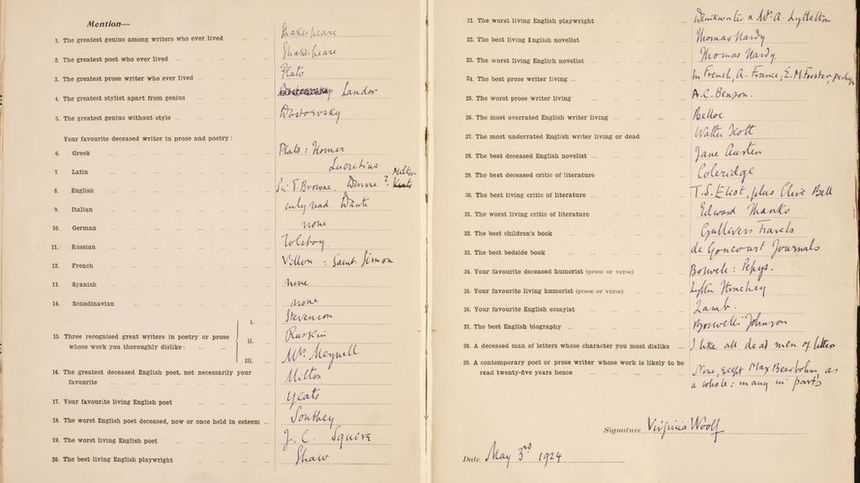 Mention—
1. The greatest genius among writers who ever lived Shakespeare
2. The greatest poet who ever lived Shakespeare
3. The greatest prose writer who ever lived Plato
4. The greatest stylist apart from genius Landor
5. The greatest genius without style Dostoevsky
Your favourite deceased writer in prose and poetry:
6. Greek Plato: Homer
7 Latin Lucretius
8 English Sir T. Browne, Donne? Keats
9. Italian only read Dante
10. German none
11. Russian Tolstoy
12. French Villon: Saint Simon
13. Spanish none
14. Scandinavian none
15. Three recognised great writers in poetry or prose whose work you thoroughly dislike:
i. Stevenson
ii. Ruskin
iii. Mrs Meynell
16. The greatest deceased English poet, not necessarily your favourite Milton
17. Your favourite living English poet Yeats
18. The worst English poet deceased, now or once held in esteem Southey
19. The worst living English poet J. C. Squire
20. The best living English playwright Shaw
21. The worst living English playwright Drinkwater & Lyttelton
22. The best living English novelist Thomas Hardy
23. The worst living English novelist Thomas Hardy
24. The best prose writer living In French, A. France, E. M. Forster, perhaps
25. The worst prose writer living A. C. Benson.
26. The most overrated English writer living Belloc
27. The most underrated English writer living or dead Walter Scott
28. The best deceased English novelist Jane Austen
29. The best deceased critic of literature Coleridge
30. The best living critic of literature T. S. Eliot, plus Clive Bell
31. The worst living critic of literature Edward Shanks
32. The best children's book Gullivers Travels
33. The best bedside book de Goncourt Journals
34. Your favourite deceased humorist (prose or verse) Boswell: Pepys.
35. Your favourite living humorist (prose or verse) Lytton Strachey
36. Your favourite English essayist Lamb.
37. The best English biography Boswell's Johnson
38. A deceased man of letters whose character you most dislike I like all dead men of letters
39. A contemporary poet or prose writer whose work is likely to
be read twenty-five years hence None, except Max Beerbohm, as
a whole; many in parts
Signature Virginia Woolf
Date May 3rd 1924